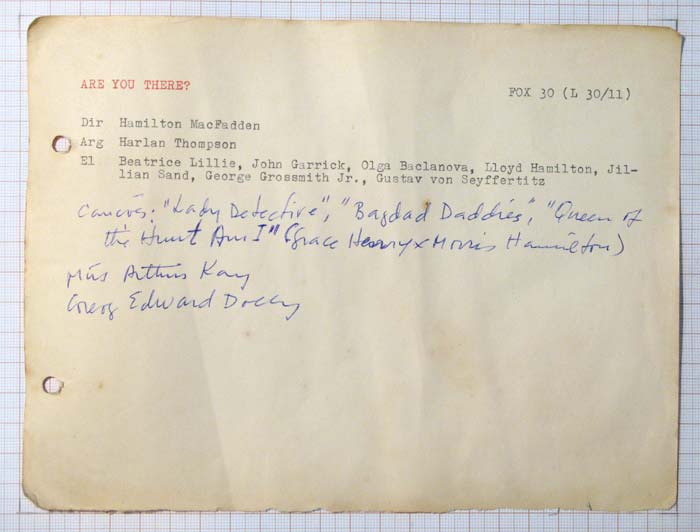 ARE YOU THERE?
FOX 30 (L 30/11)
Dir Hamilton MacFadden
Arg Harlan Thompson
El Beatrice Lillie, John Garrick, Olga Baclanova, Lloyd Hamilton, Jil-
lian Sand, George Grossmith Jr., Gustav von Seyffertitz
"Lady Detective", "Bagdad Daddies", "Queen of
the Hunt Am I" (Grace Henry x Morris Hamilton)
Mús Arthur Kay
Coreog Edward Dolly